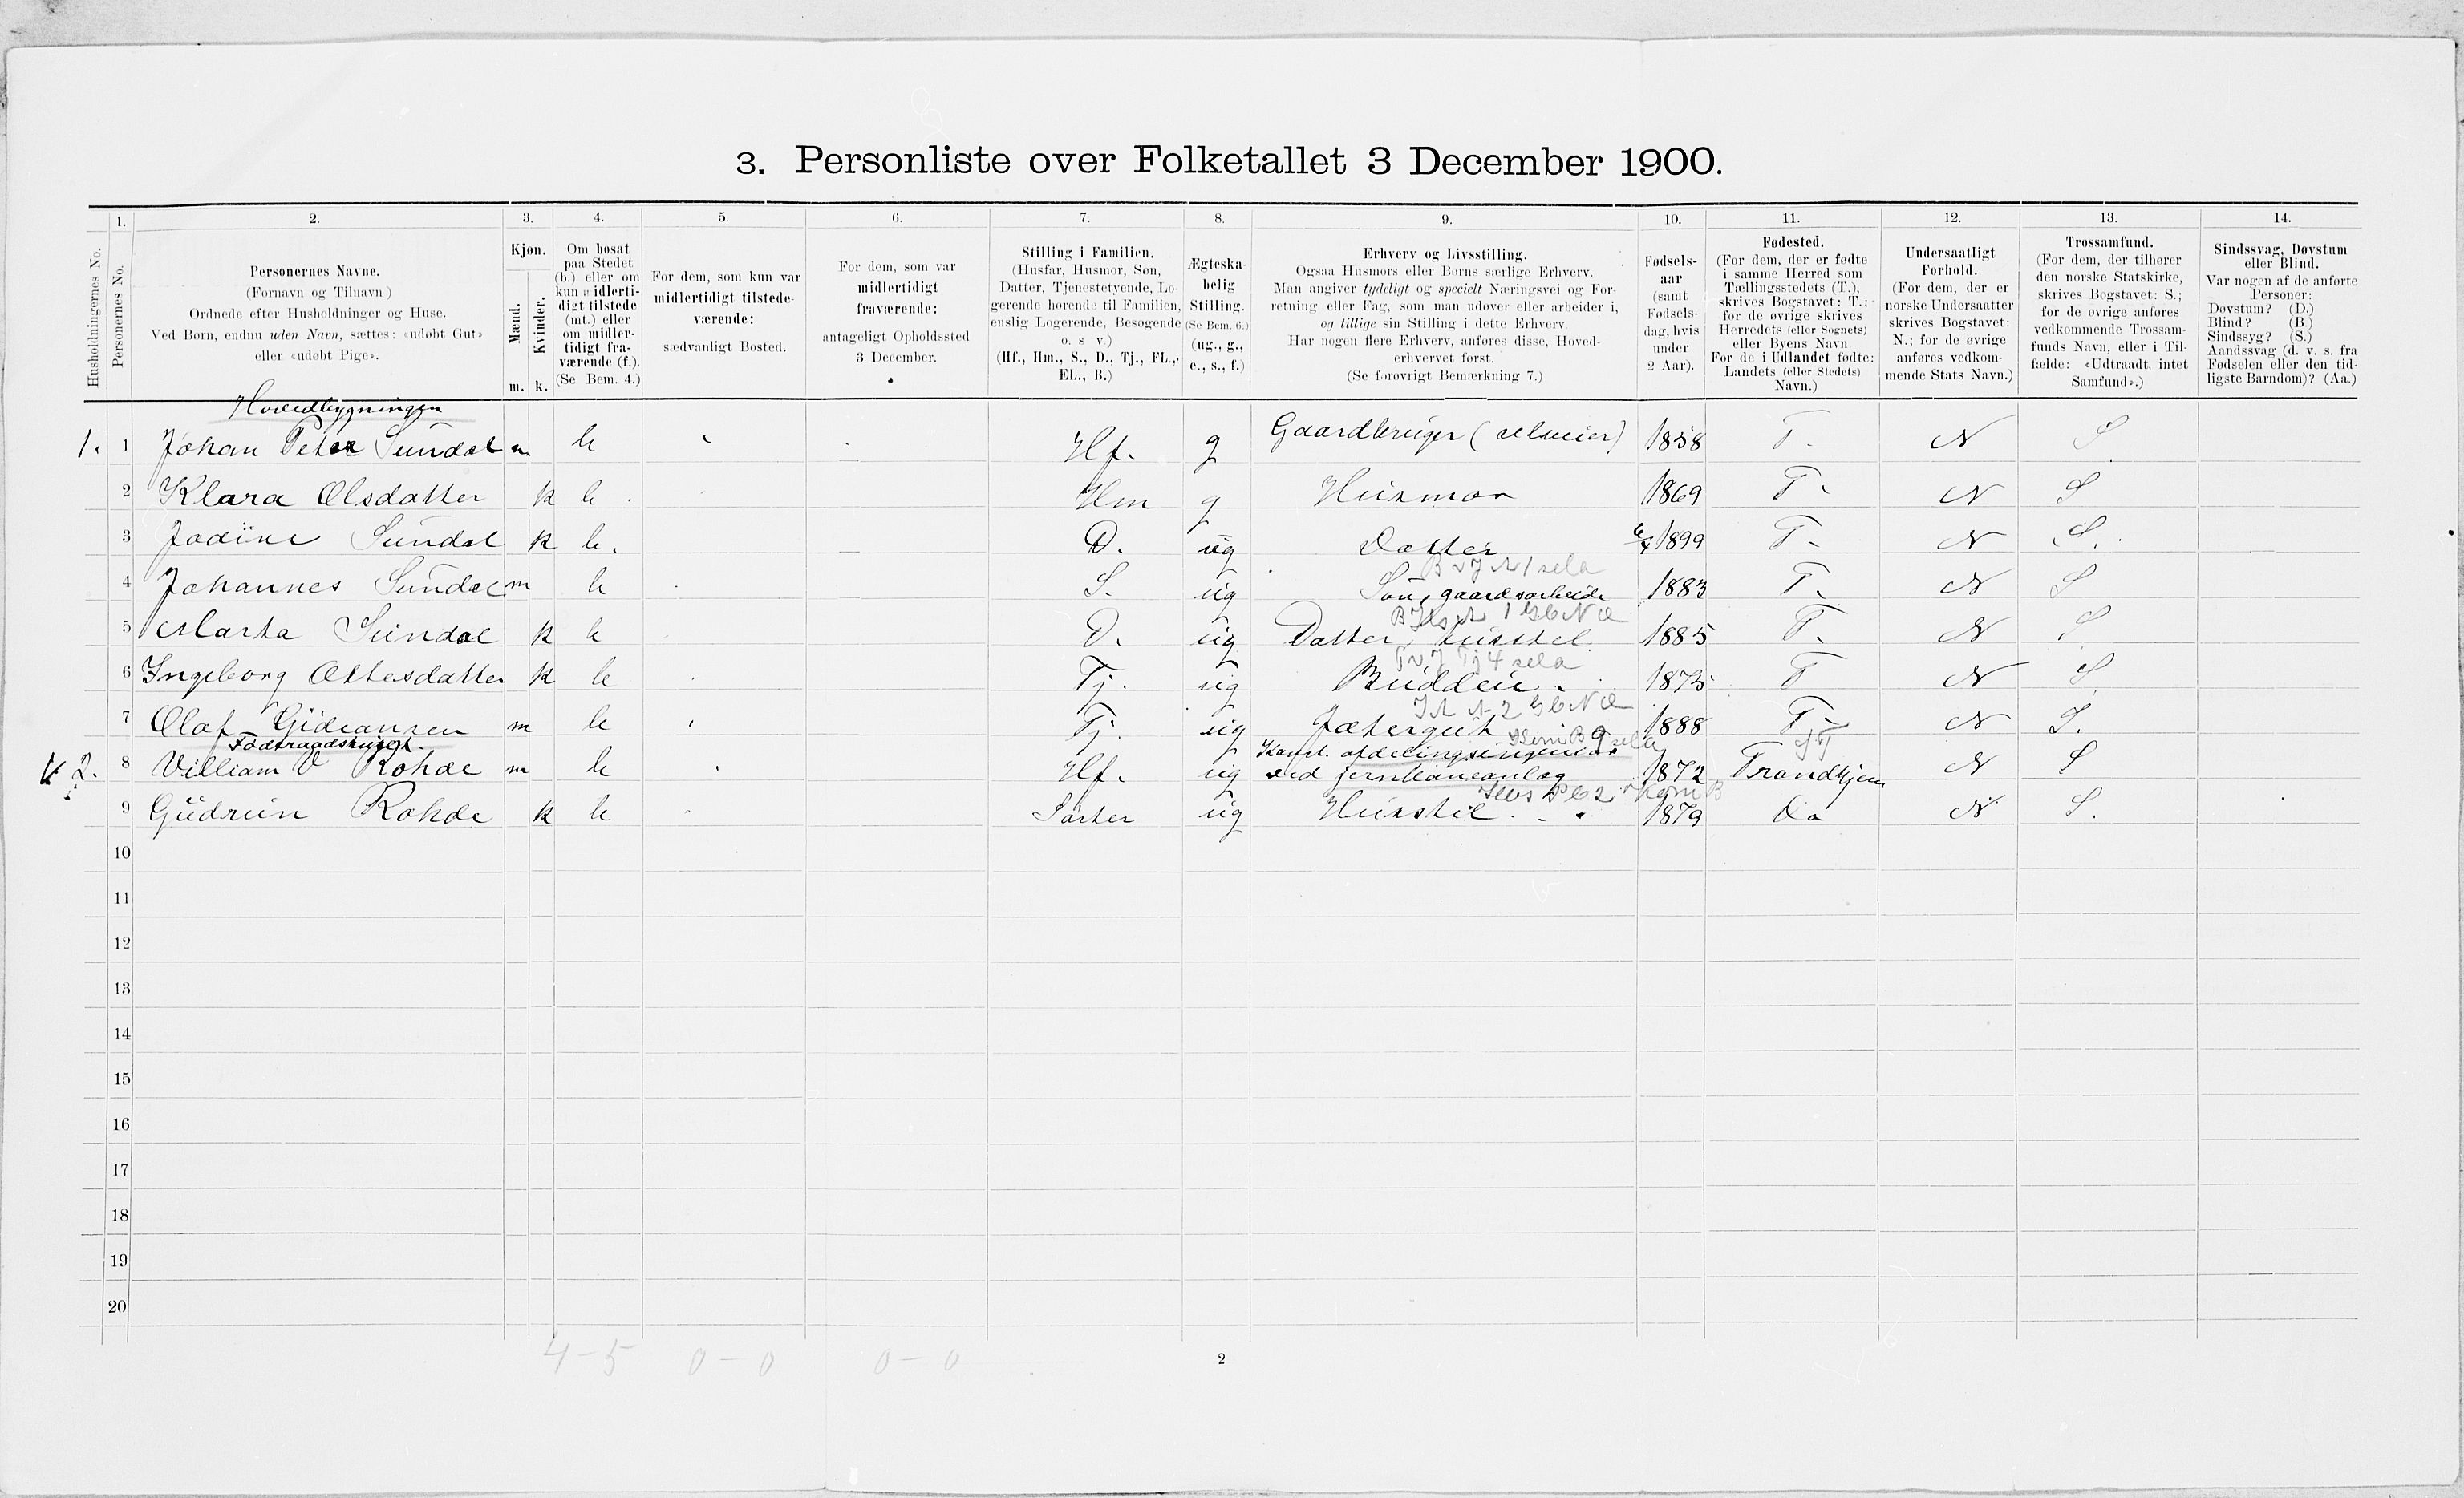 3. Personliste over Folketallet 3 December 1900.
1. 2. 3. 4. 5. 6. 7. 8. 9. 10. 11. 12. 13. 14.
Husholdningernes No.
Personernes No.
Personernes Navne.
(Fornavn og Tilnavn)
Ordnede efter Husholdninger og Huse.
Ved Børn, endnu uden Navn, sættes: «udøbt Gut»
eller «udøbt Pige».
Kjøn.
Mænd.
Kvinder.
m. k.
Om bosat
paa Stedet
(b.) eller om
kun midlerti-
digt tilstede
(mt.) eller
om midler-
tidigt fra-
værende (f.).
(Se Bem. 4.)
For dem, som kun var
midlertidigt tilstede-
værende:
sædvanligt Bosted.
For dem, som var
midlertidigt
fraværende:
antageligt Opholdssted
3 December.
Stilling i Familien.
(Husfar, Husmor, Søn,
Datter, Tjenestetyende, Lo-
gerende hørende til Familien,
enslig Logerende, Besøgende
o. s v.)
(Hf., Hm., S., D., Tj., FL.,
EL., B.)
Ægteska-
belig
Stilling.
(Se Bem. 6.)
(ug., g.,
e., s., f.)
Erhverv og Livsstilling.
Ogsaa Husmors eller Børns særlige Erhverv.
Man angiver tydeligt og specielt Næringsvei og For-
retning eller Fag, som man udøver eller arbeider i,
og tillige sin Stilling i dette Erhverv.
Har nogen flere Erhverv, anføres disse, Hoved-
erhvervet først.
(Se forøvrigt Bemærkning 7.)
Fødsels-
aar
(samt
Fødsels-
dag, hvis
under
2 Aar).
Fødested.
(For dem, der er fødte
i samme Herred som
Tællingsstedets (T.),
skrives Bogstavet: T.;
for de øvrige skrives
Herredets (eller Sognets)
eller Byens Navn.
For de i Udlandet fødte:
Landets (eller Stedets)
Navn.)
Undersaatligt
Forhold.
(For dem, der er
norske Undersaatter
skrives Bogstavet:
N.; for de øvrige
anføres vedkom-
mende Stats Navn.)
Trossamfund.
(For dem, der tilhører
den norske Statskirke,
skrives Bogstavet: S.;
for de øvrige anføres
vedkommende Trossam-
funds Navn, eller i Til-
fælde: «Udtraadt, intet
Samfund».)
Sindssvag, Døvstum
eller Blind.
Var nogen af de anførte
Personer:
Døvstum? (D.)
Blind? (B.)
Sindssyg? (S.)
Aandssvag (d. v. s. fra
Fødselen eller den tid-
ligste Barndom)? (Aa.)
Hovedbygningen
1. 1 Johan Peter Sundal m b Hf. g Gaardbruger (selveier) 1858 T. N S.
2 Klara Olsdatter k b Hm g Husmor 1869 T. N S
3 Jodine Sundal k b. D. ug Datter 1899 T. N S.
4 Johannes Sundal m b S. ug Søn, gaardsarbeide 1883 T. N S
5 Marta Sundal k b D. ug Datter, husstel 1885 T. N S
6 Ingeborg Ottesdatter k b Tj. ug Buddeie. 1875 T N S
7 Olaf Gideansen m b Tj. ug Jætergut 1888 T. N S.
Födtraadshuset.
Konst. afdelingsingeniør
2. 8 Villiam V Rohde m b Hf. ug ved jernbaneanlæg 1872 Trondhjem N S
9 Gudrun Rohde k b Søster ug Husstel 1879 Do N S.
10
11
12
13
14
15
16
17
18
19
20
4-5 0-0 0-0
2